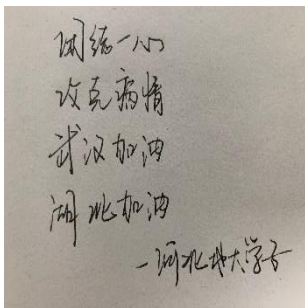 团结一心
攻克病情
武汉加油
湖北加油
—河北地大学子